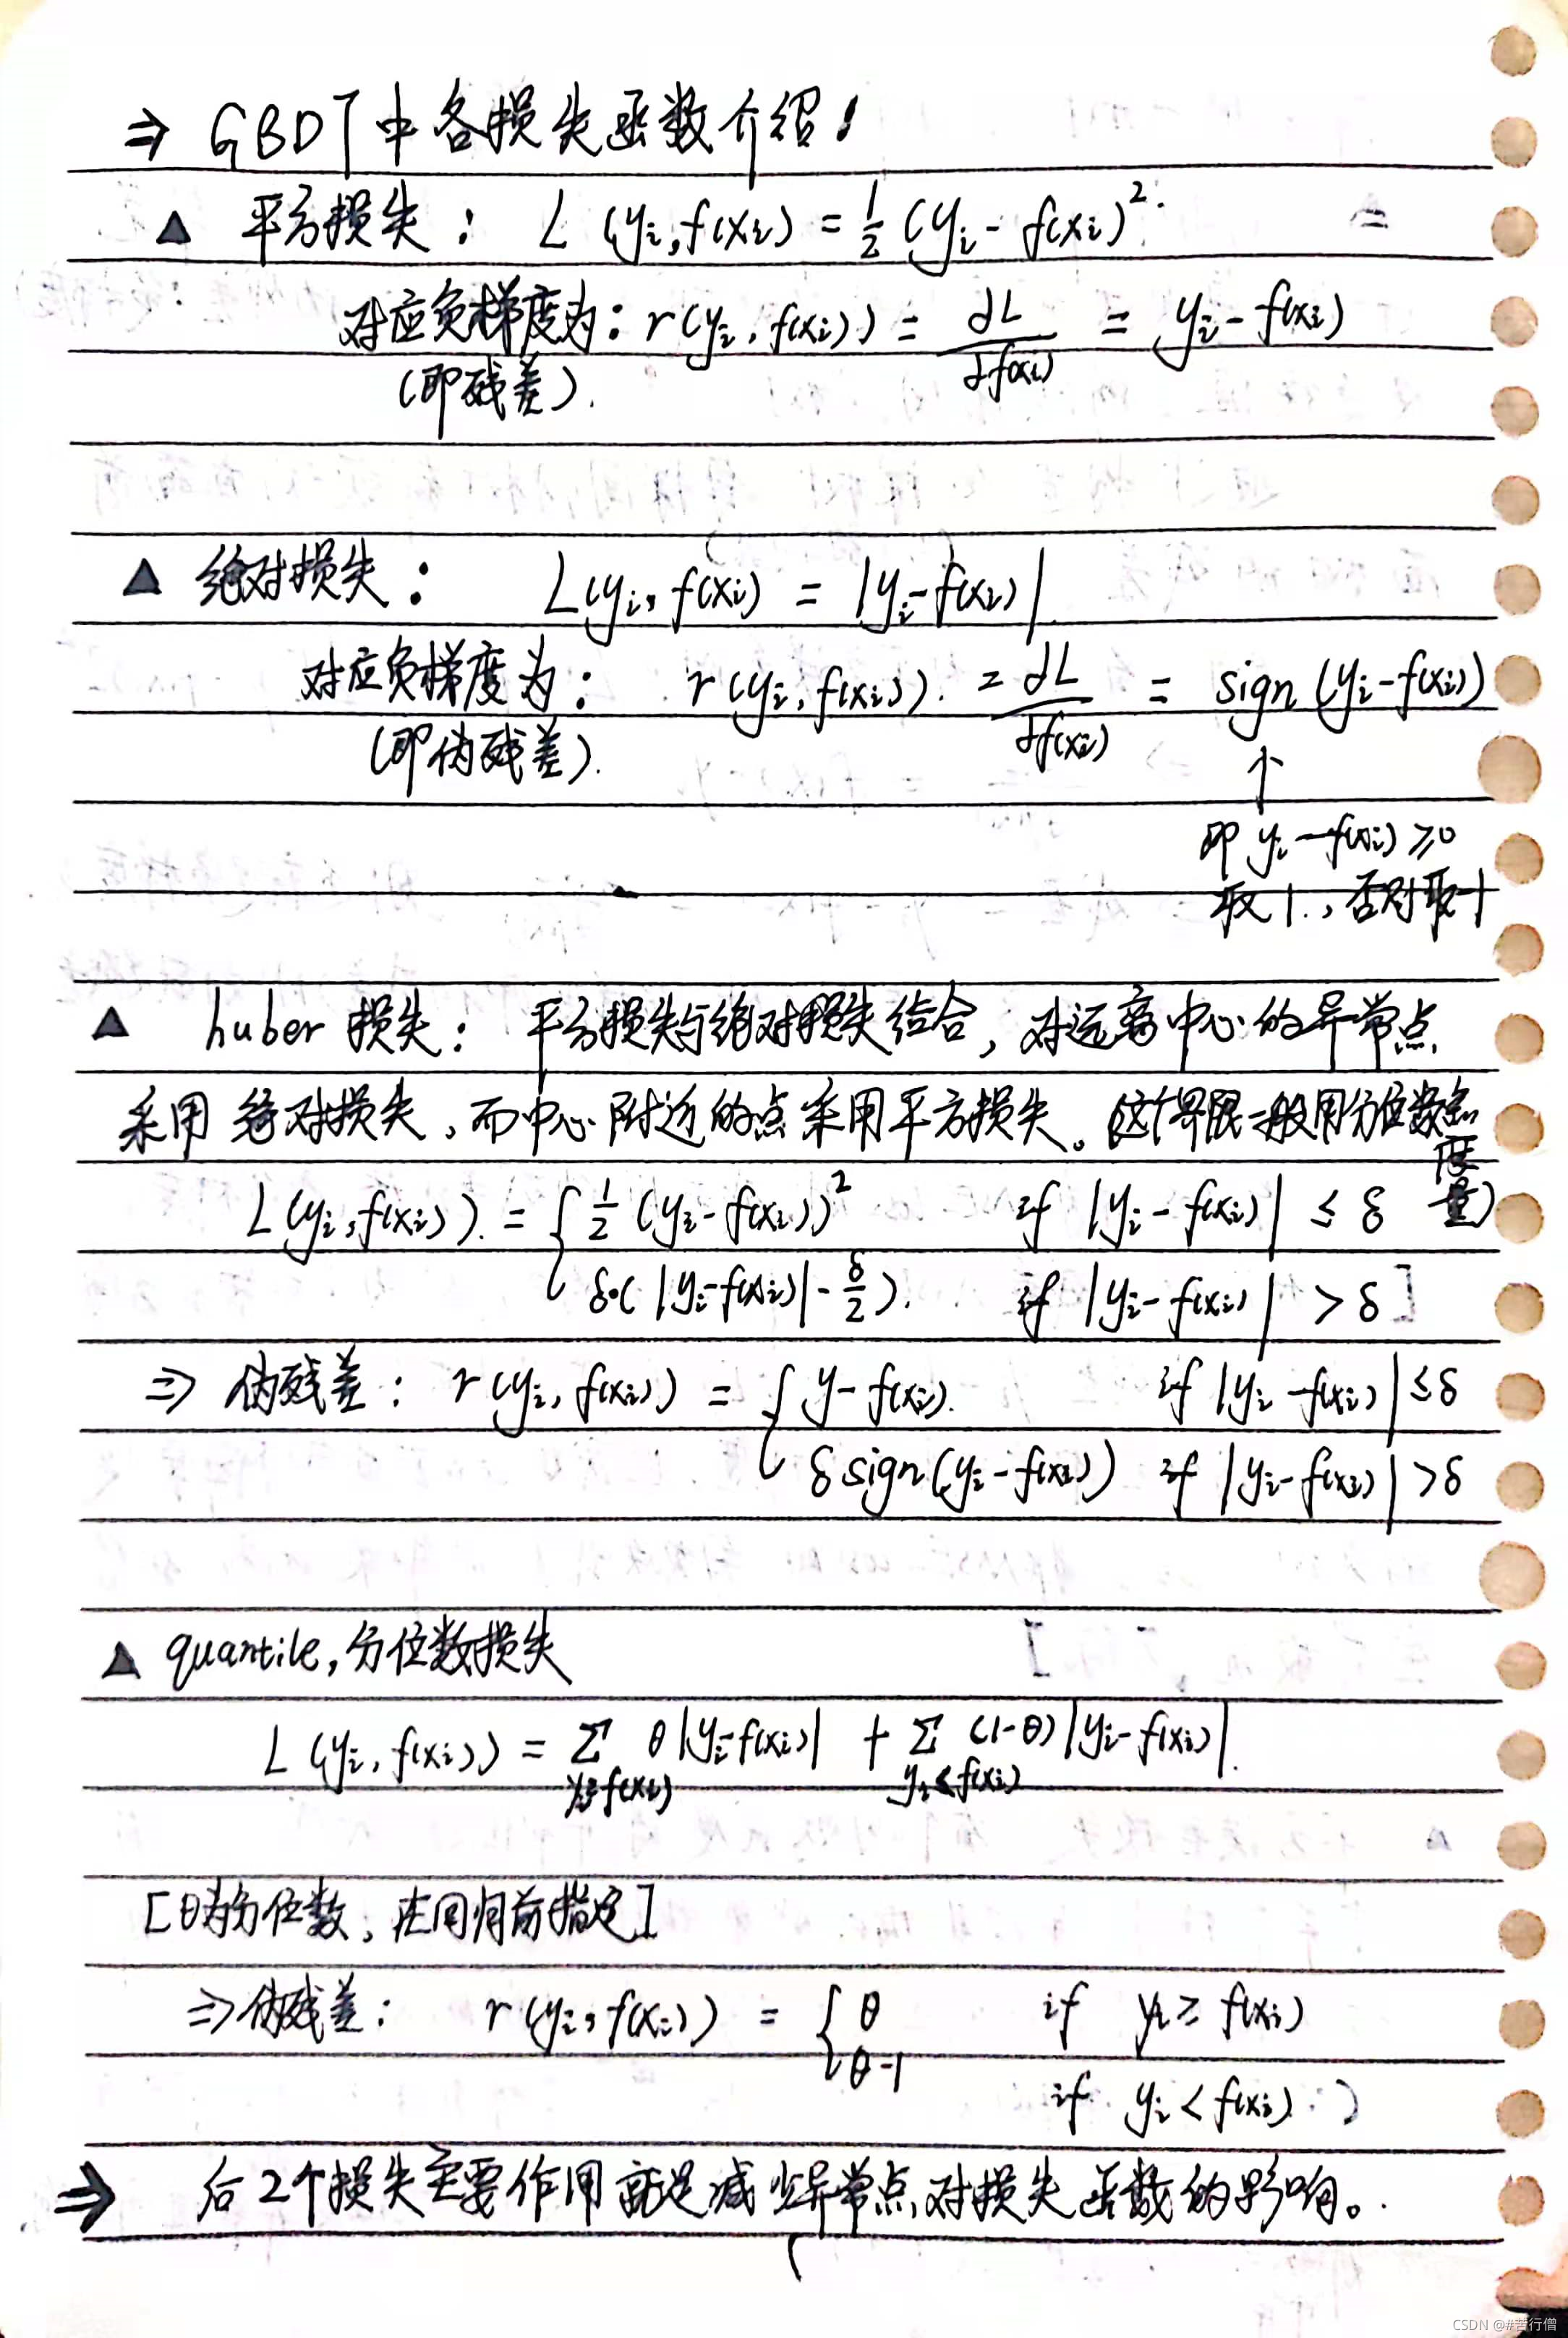 ⇒ GBDT中各损失函数介绍!
▲ 平方损失: L(yi, f(xi) = 1/2 (yi - f(xi)²
对应负梯度为: r(yi, f(xi)) = ∂L/∂f(xi) = yi - f(xi)
(即残差).
▲ 绝对损失: L(yi, f(xi) = |yi - f(xi)|
对应负梯度为: r(yi, f(xi)). = ∂L/∂f(xi) = sign(yi - f(xi))
(即伪残差).
↑
即 yi - f(xi) ≥ 0
取1, 否则取-1
▲ huber 损失: 平方损失与绝对损失结合, 对远离中心的异常点
采用绝对损失, 而中心附近的点采用平方损失。(这个界限一般用分位数点
度
量)
L(yi, f(xi)). = { 1/2 (yi - f(xi))² if |yi - f(xi)| ≤ δ
δ·(|yi - f(xi)| - δ/2). if |yi - f(xi)| > δ
⇒ 伪残差: r(yi, f(xi)) = { y - f(xi). if |yi - f(xi)| ≤ δ
δ sign(yi - f(xi)) if |yi - f(xi)| > δ
▲ quantile, 分位数损失
L(yi, f(xi)) = Σ θ|yi - f(xi)| + Σ (1-θ)|yi - f(xi)|.
yi≥f(xi) yi≤f(xi)
[θ为分位数, 在回归前指定]
⇒ 伪残差: r(yi, f(xi)) = { θ if yi ≥ f(xi)
θ-1 if yi < f(xi)
⇒ 后2个损失主要作用就是减少异常点对损失函数的影响。
CSDN @#苦行僧